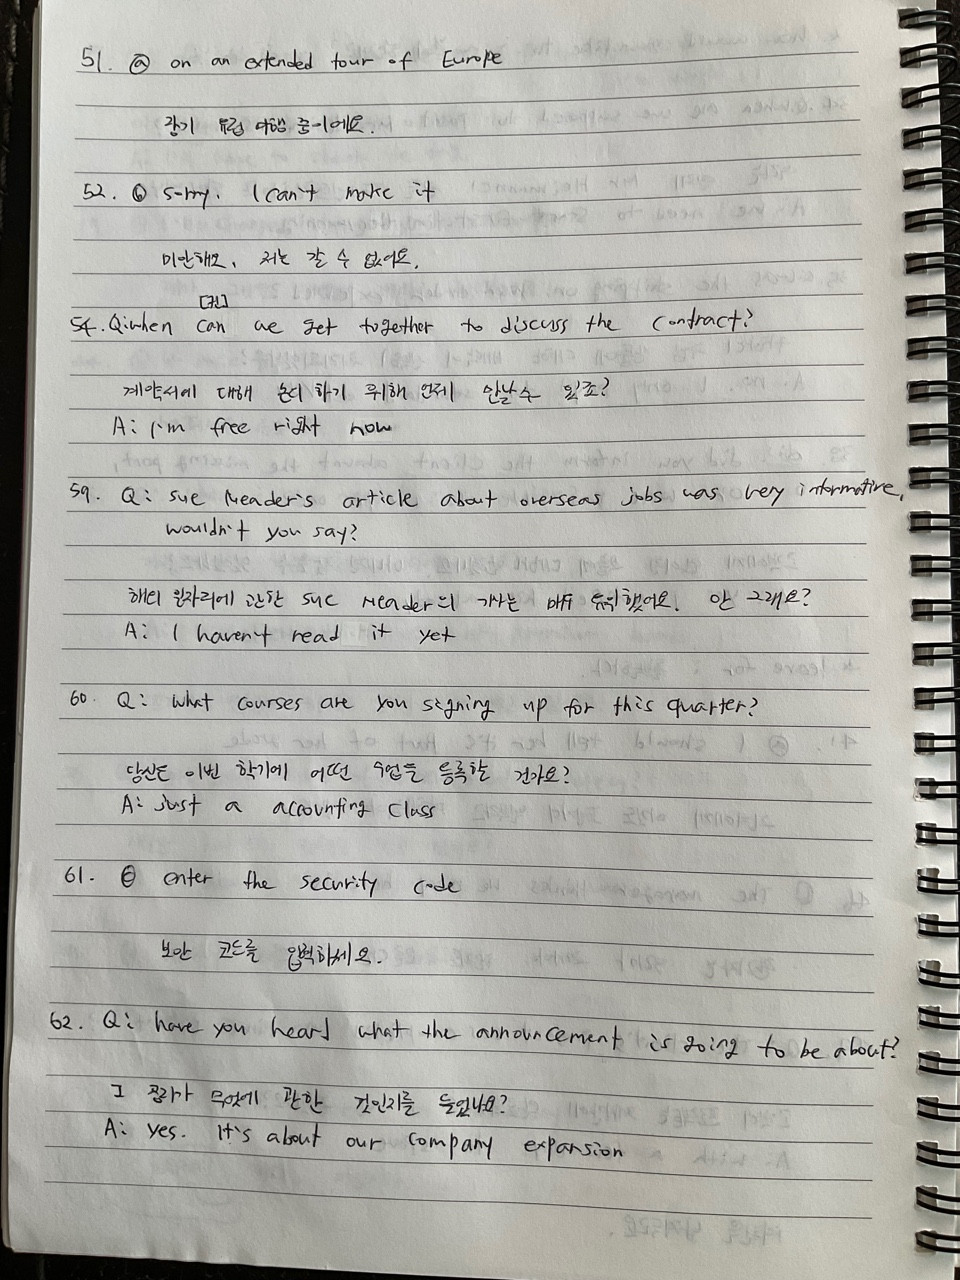 51. ⓐ on an extended tour of Europe
장기 유럽 여행 중이에요.
52. ⓑ sorry. I can't make it
미안해요, 저는 갈 수 없어요.
[컨]
54. Q: when can we get together to discuss the contract?
계약서에 대해 논디하기 위해 언제 만날수 있죠?
A: I'm free right now
59. Q: sue Meader's article about overseas jobs was very informative,
wouldn't you say?
해외 일자리에 관한 sue Meader의 기사는 매우 유익했어요. 안 그래요?
A: I haven't read it yet
60. Q: what courses are you signing up for this quarter?
당신은 이번 학기에 어떤 수업들 등록할 건가요?
A: just a accounting class
61. ⓒ enter the security code
보안 코드를 입력하세요.
62. Q: have you heard what the announcement is going to be about?
그 공지가 무엇에 관한 것인지를 들었나요?
A: yes. It's about our company expansion